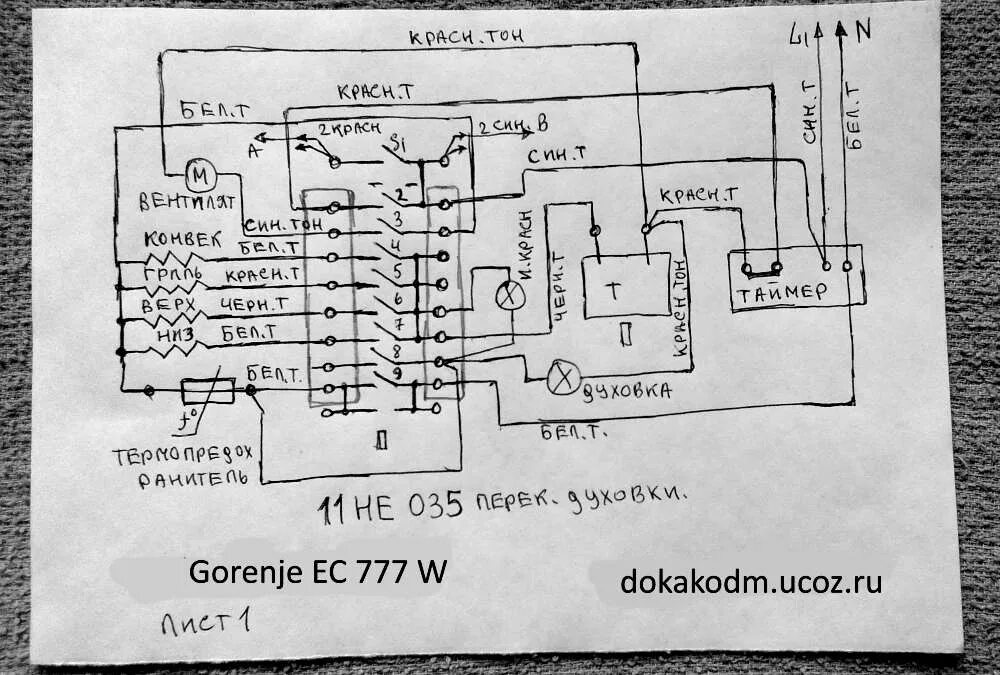 КРАСН.ТОН
L1 N
КРАСН.Т
БЕЛ.Т
2КРАСН
S1
2 СИН. В
А
СИН.Т
БЕЛ.Т
СИН.Т
М
ВЕНТИЛЯТ
2
КРАСН.Т
СИН.ТОН
3
КОНВЕК
БЕЛ.Т
4
И.КРАСН
ГРИЛЬ
КРАСН.Т
5
ЧЕРН.Т
Т
КРАСН.ТОН
ТАЙМЕР
ВЕРХ
ЧЕРН.Т
6
НИЗ
БЕЛ.Т
7
8
БЕЛ.Т.
9
ДУХОВКА
t°
БЕЛ.Т.
ТЕРМОПРЕДОХ
РАНИТЕЛЬ
11 НЕ 035 ПЕРЕК. ДУХОВКИ.
Gorenje EC 777 W
dokakodm.ucoz.ru
Лист 1